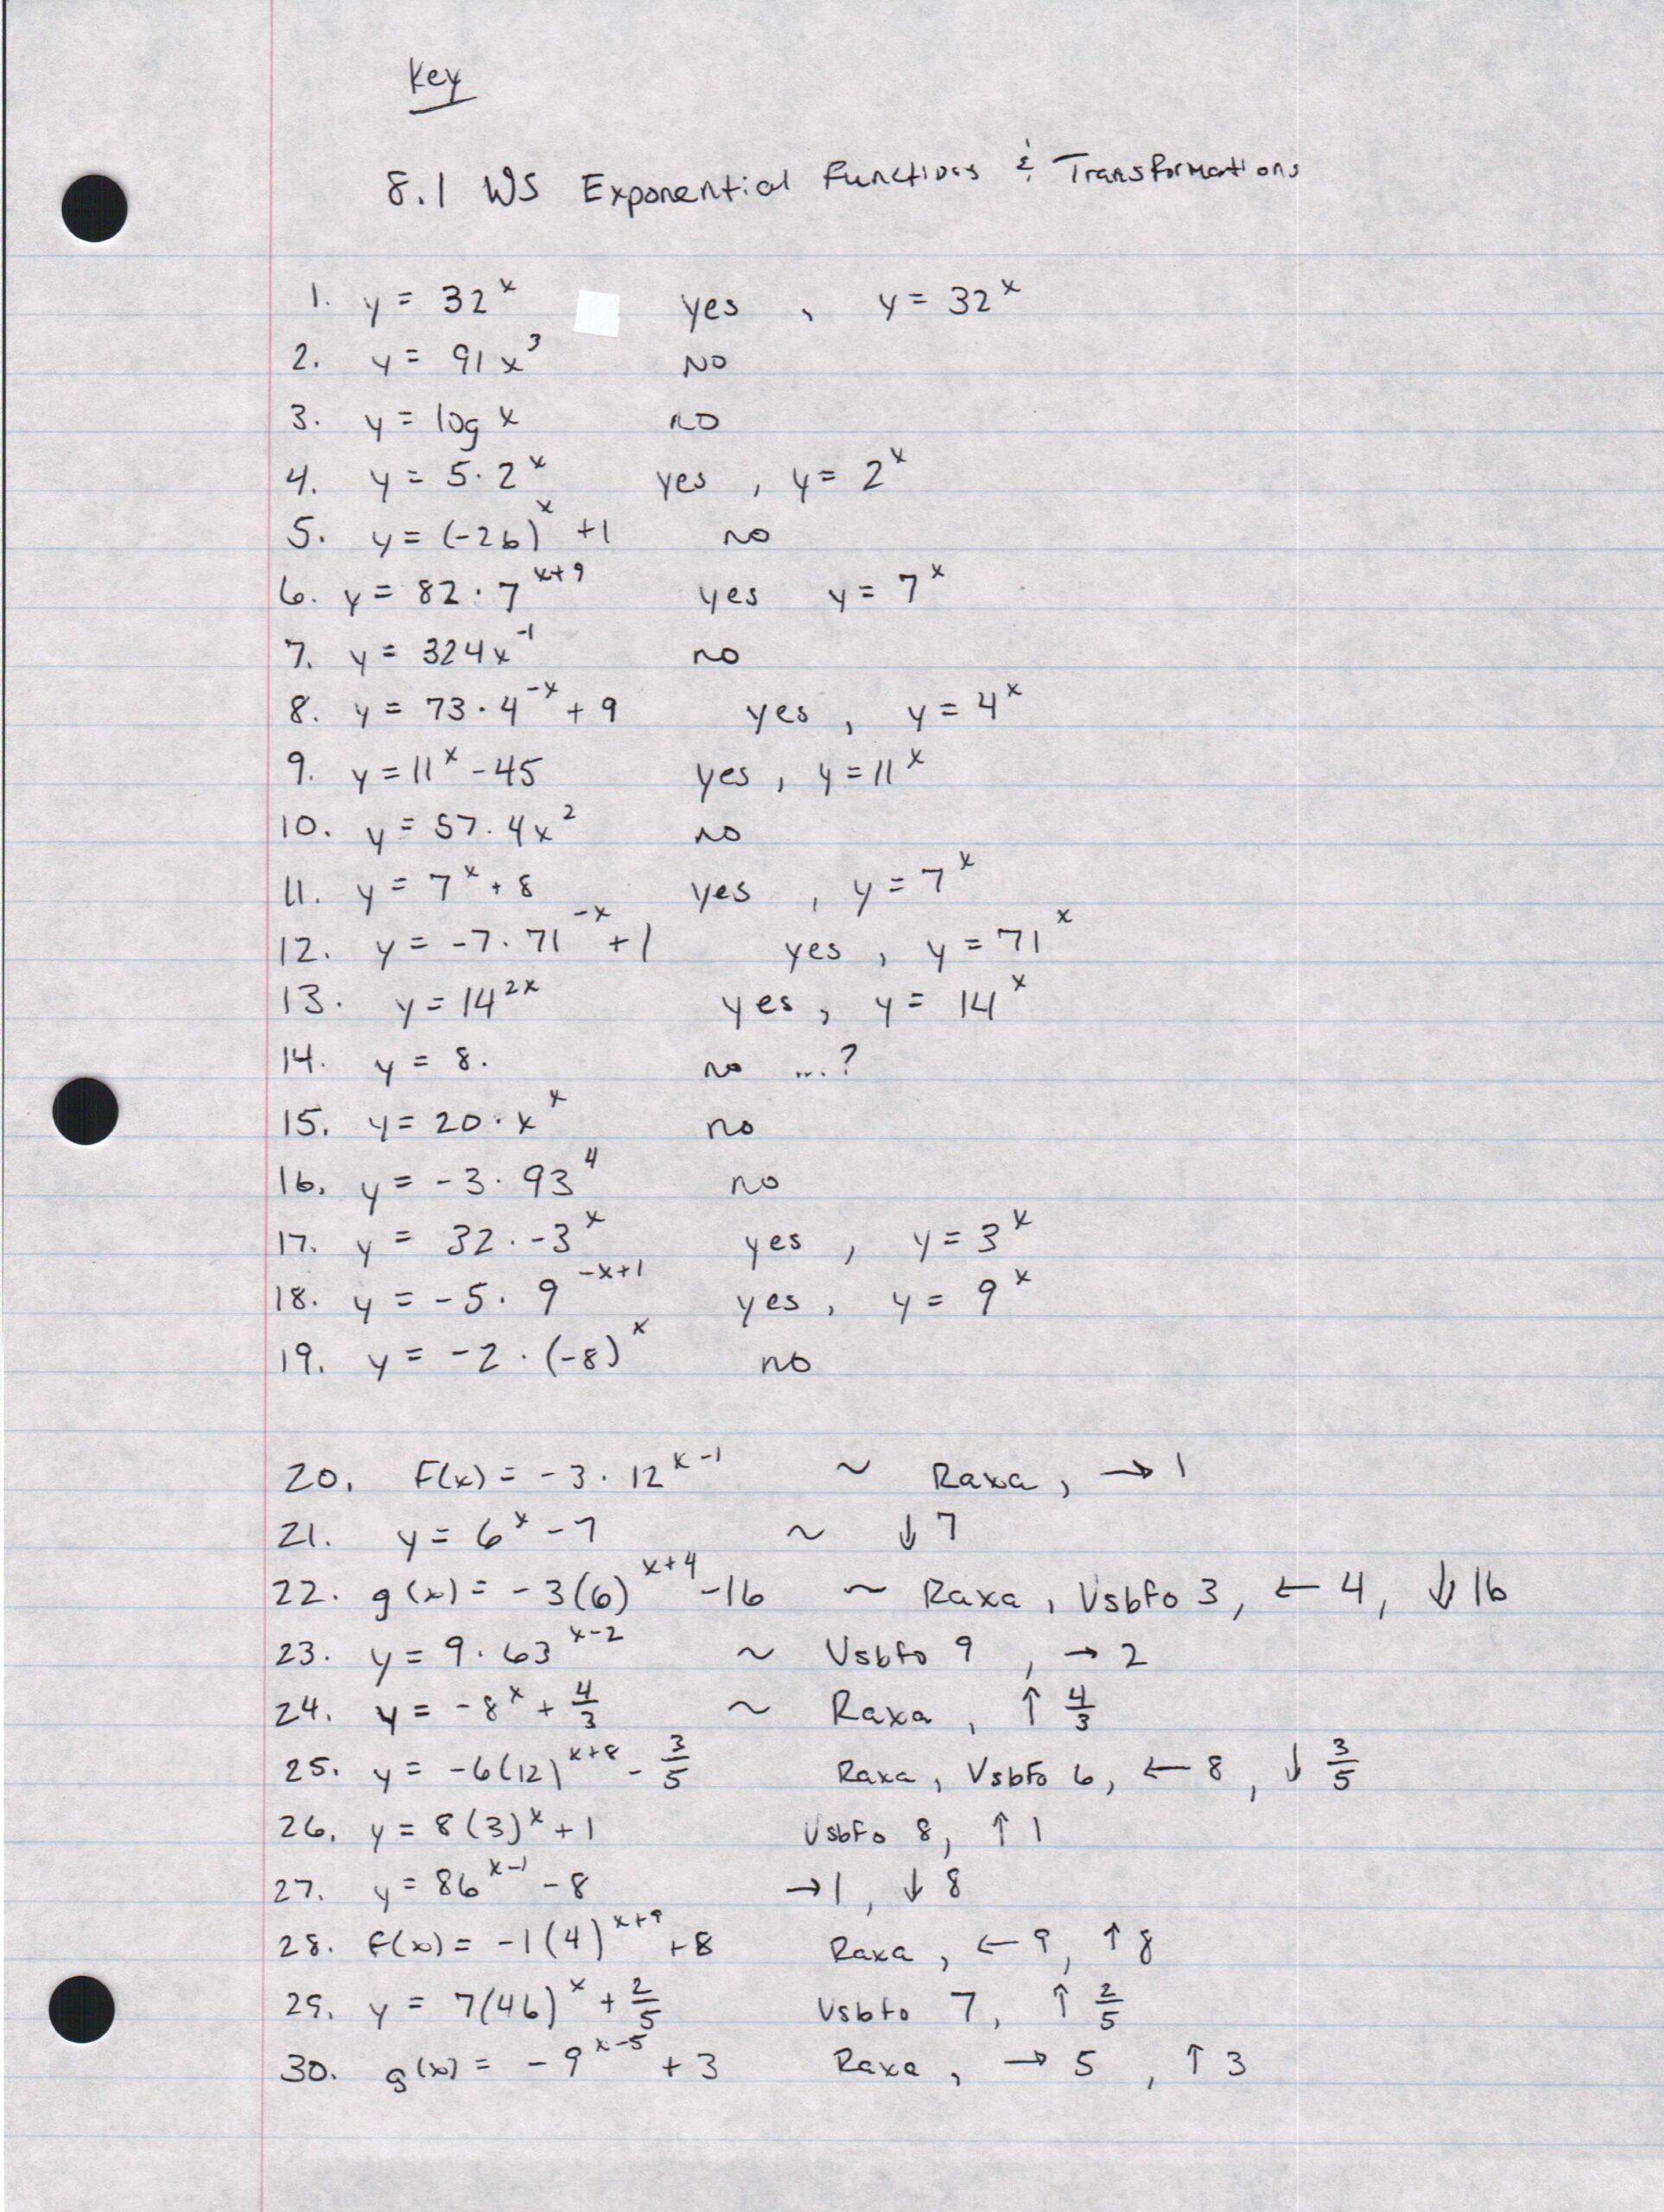 Key
8.1 WS Exponential Functions & Transformations
1. y = 32^x yes, y = 32^x
2. y = 91x^3 NO
3. y = log x no
4. y = 5·2^x yes, y = 2^x
5. y = (-26)^x +1 no
6. y = 82·7^(x+9) yes y = 7^x
7. y = 324x^-1 no
8. y = 73·4^-x + 9 yes, y = 4^x
9. y = 11^x - 45 yes, y = 11^x
10. y = 57.4x^2 no
11. y = 7^x + 8 yes, y = 7^x
12. y = -7·71^-x +1 yes, y = 71^x
13. y = 14^2x yes, y = 14^x
14. y = 8. no ...?
15. y = 20·x^x no
16. y = -3·93^4 no
17. y = 32·-3^x yes, y = 3^x
18. y = -5·9^(-x+1) yes, y = 9^x
19. y = -2·(-8)^x no
20. F(x) = -3·12^(x-1) ~ Raxa, → 1
21. y = 6^x - 7 ~ ↓ 7
22. g(x) = -3(6)^(x+4) -16 ~ Raxa, Vsbfo 3, ← 4, ↓ 16
23. y = 9·63^(x-2) ~ Vsbfo 9, → 2
24. y = -8^x + 4/3 ~ Raxa, ↑ 4/3
25. y = -6(12)^(x+8) - 3/5 Raxa, Vsbfo 6, ← 8, ↓ 3/5
26. y = 8(3)^x + 1 Vsbfo 8, ↑ 1
27. y = 86^(x-1) - 8 → 1, ↓ 8
28. F(x) = -1(4)^(x+9) +8 Raxa, ← 9, ↑ 8
29. y = 7(46)^x + 2/5 Vsbfo 7, ↑ 2/5
30. g(x) = -9^(x-5) + 3 Raxa, → 5, ↑ 3